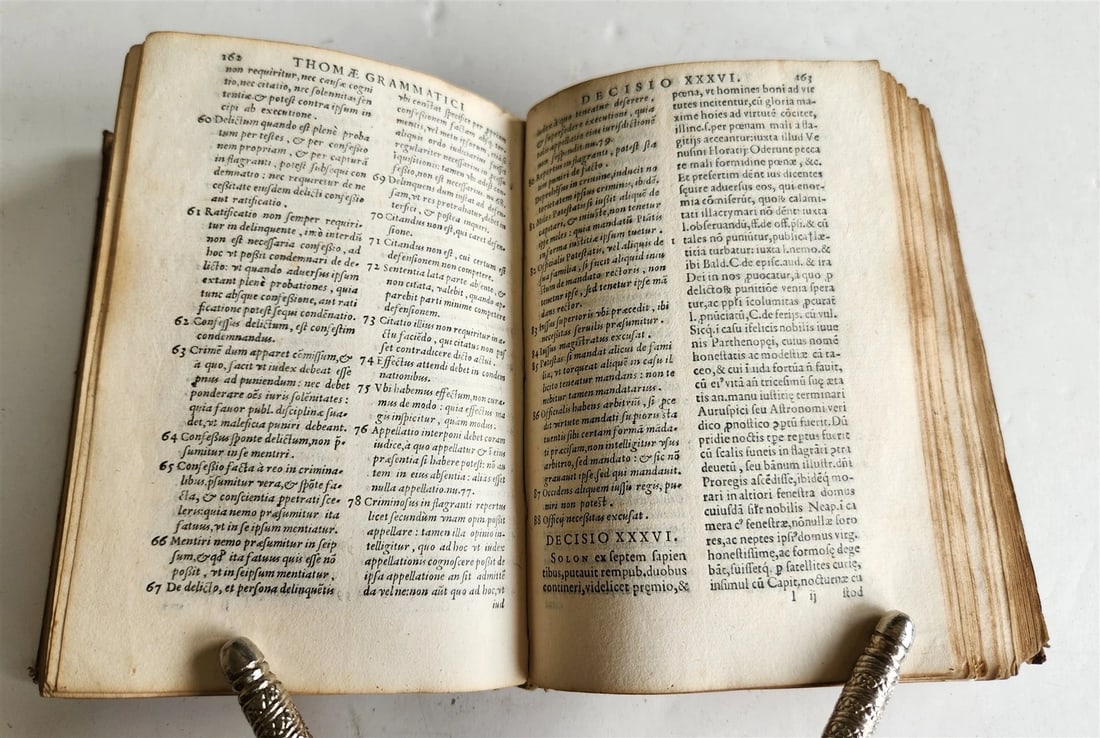 162
THOMÆ GRAMMATICI
non requiritur, nec causæ cogni
tio, nec citatio, nec solennitas sen
tentiæ & potest contra ipsum in
cipi ab executione.
60 Delictum quando est plenè proba
tum per testes, & per confessio
nem propriam, & per capturã
in flagranti, potest subsequi con
demnatio: nec requiretur de ne
cessitate eiusdem delicti confessio
aut ratificatio.
61 Ratificatio non semper requiri-
tur in delinquente, imò interdũ
non est necessaria confessio, ad
hoc vt possit condemnari de de-
licto: vt quando aduersus ipsum
extant plenè probationes, quia
tunc absque confessione, aut rati
ficatione potest sequi condẽnatio.
62 Confessus delictum, est confestim
condemnandus.
63 Crimẽ dum apparet cõmissum, &
à quo, facit vt iudex debeat esse
pnus ad puniendum: nec debet
ponderare oẽs iuris solẽnitates:
quia fauor publ. disciplinæ sua-
det, vt maleficia puniri debeant.
64 Confessus sponte delictum, non p̃-
sumitur in se mentiri.
65 Confessio facta à reo in crimina-
libus, p̃sumitur vera, & spõte fa-
cta, & conscientia ꝑpetrati sce-
leris: quia nemo præsumitur ita
fatuus, vt in se ipsum mentiatur.
66 Mentiri nemo præsumitur in seip
sum, & qđ ita fatuus quis esse nõ
possit, vt in seipsum mentiatur.
67 De delicto, et persona delinquẽtis
vbi constat
confessionem factam
mentis, vel meta ipsorum,
aliquis ordo iudiciarius
regulariter necessarius in
iquisitionis: tamen vbi
fessio, non est necessarius
69 Delinquens dum instat ad defen-
sam, vt res protrahatur, debet in
terfici, & postea inqueri.
70 Citandus non est, qui caret defen-
sione.
71 Citandus non est, cui certum est
defensionem non competere.
72 Sententia lata parte absente, &
non citata, valebit, quando ap-
parebit parti minime competere
defensionem.
73 Citatio illius non requiritur in a-
ctu faciẽdo, qui citatus non pos
set contradicere dicto actui.
74 Effectus attendi debet in condem
nationibus.
75 Vbi habemus effectum, non cura-
mus de modo: quia effectus ma
gis inspicitur, quam modus.
76 Appellatio interponi debet coram
iudice, à quo appellatur & ei
præsentia si habere potest: nõ au
tem in eius absentia: alias esset
nulla appellatio. nu. 77.
78 Criminosus in flagranti repertus
licet secundùm vnam opin. possit
appellare: tamen illa opinio in-
telligitur, quo ad hoc vt iudex
appellationis cognoscere possit de
ipsa appellatione an sit admittẽ
da vel ne: non aũt quo ad hoc, vt
iud
DECISIO XXXVI.
163
iudex à quo teneatur deferere,
& supersedere executioni, quia
talis appellatio eius iurisdictionẽ
non suspendit. nu. 79.
80 Repertus in flagranti, potest sta
tim puniri de facto.
Depræhẽsus in crimine, inducit no
torietatem ipsius criminis, ibidẽ.
81 Miles Potestatis si iustit aliquẽ de
capitari, & iniustè, non tenetur
ipse miles: quia mandatũ Ptãtis
in forma iustitiæ ipsum tuetur.
82 Officialis Potestatis, vel aliquis de
sua familia, si fecit aliquid iniu
stum de mandato rectoris, non
tenetur ipse, sed tenetur ipse mã
dans rector.
83 Iussus superioris vbi præcedit, ibi
necessitas seruilis præsumitur.
84 Iussus magistratus excusat.
85 Potestas si mandat alicui de fami
lia, vt torqueat aliquẽ in casu il
licito teneatur mandans: non te
nebitur tamen mandatarius.
86 Officialis habens arbitriũ, si ꝓce
dit virtute mandati supioris sta
tuentis sibi certam formã mãda-
ti præcisam, non intelligitur vsus
arbitrio, sed mandato: & sic nõ
grauauit ipse, sed qui mandauit.
87 Occidens aliquem iussu regis, pu-
niri non potest.
88 Officij necessitas excusat.
DECISIO XXXVI.
SOLON ex septem sapien
tibus, putauit rempub. duobus
contineri, videlicet pręmio, &
pœna, vt homines boni ad vir
tutes incitentur, cũ gloria ma-
xime hoies ad virtutẽ cõcitet,
illinc. s. per pœnam mali a fla-
gitijs arceantur: iuxta illud Ve
nusini Horatij: Oderunt pecca
re mali formidine pœnæ, &c.
Et presertim dẽnt ius dicentes
sęuire aduersus eos, qui enor-
mia cõmiserũt, quoꝝ calami-
tati illacrymari nõ dẽnt: iuxta
l. obseruandũ, ff. de off. p̃s. & cũ
tales nõ puniũtur, publica læ-
titia turbatur: iuxta l. nemo. &
ibi Bald. C. de episc. aud. & ira
Dei in nos ꝓuocatur, à quo ꝓ
delictoꝝ punitiõe venia spera
tur, ac ppľi icolumitas ꝓcurat̃
l. ꝓnũciatũ, C. de ferijs. cũ vul.
Sicq. i casu ifelicis nobilis iuue
nis Parthenopęi, cuius nomẽ
honestatis ac modestiæ cã ta-
ceo, & cui i uda fortũa ñ fauit,
cũ eiꝰ vitã añ tricesimũ suę æta
tis an. manu iustitię terminari
Auruspici seu Astronomi veri
dico ꝓnostico ꝓptũ fuerit. Dũ
pridie noctis tꝑe reptus fuerit
cũ scalis funeis in flagrãti ptra
deueñ, seu bãnum illustr. dñi
Proregis ascẽdisse, ibidẽq́ mo-
rari in altiori fenestra domus
cuiusdã siľr nobilis Neap. i ca
mera cꝰ fenestræ, nõnullæ soro
res, ac neptes ipsꝰ domus virg.
honestissimę, ac formosę dege
bãt, fuissetq́. ꝑ satellites curię,
insimul cũ Capit. nocturnæ cu
l ij
stod